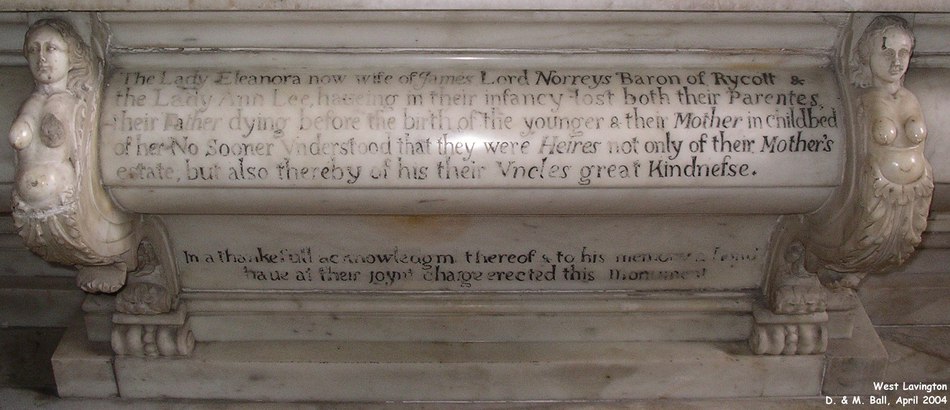 The Lady Eleanora now wife of James Lord Norreys Baron of Rycott &
the Lady Ann Lee, haueing in their infancy lost both their Parentes,
their Father dying before the birth of the younger & their Mother in childbed
of her No Sooner Vnderstood that they were Heires not only of their Mother's
estate, but also thereby of his their Vncles great Kindnesse.
In a thankefull acknowledgm thereof & to his memory
haue at their joynt charge erected this monument
West Lavington
D. & M. Ball, April 2004